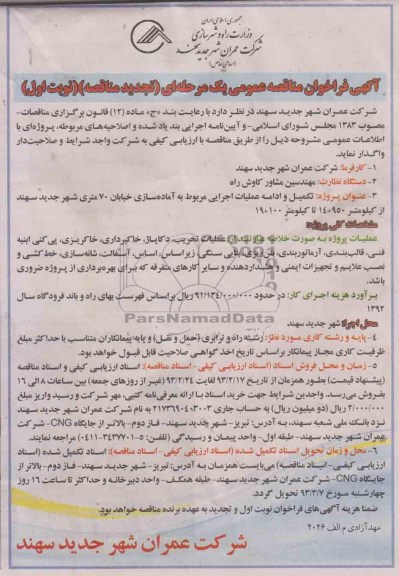 جمهوری اسلامی ایران
وزارت راه و شهرسازی
شرکت عمران شهر جدید سهند
(سهامی خاص)
آگهی فراخوان مناقصه عمومی یک مرحله‌ای (تجدید مناقصه)(نوبت اول)
شرکت عمران شهر جدید سهند در نظر دارد با رعایت بند «ج» ماده (۱۲) قانون برگزاری مناقصات-
مصوب ۱۳۸۳ مجلس شورای اسلامی- و آیین‌نامه اجرایی بند یاد شده و اصلاحیه‌های مربوطه، پروژه‌ای با
اطلاعات عمومی مشروحه ذیل را از طریق مناقصه با ارزیابی کیفی به شرکت واجد شرایط و صلاحیت‌دار
واگذار نماید.
۱- کارفرما: شرکت عمران شهر جدید سهند
۲- دستگاه نظارت: مهندسین مشاور کاوش راه
۳- عنوان پروژه: تکمیل و ادامه عملیات اجرایی مربوط به آماده‌سازی خیابان ۷۰ متری شهر جدید سهند
از کیلومتر ۱۴+۹۵۰ تا کیلومتر ۱۹+۱۰۰
مشخصات کلی پروژه:
عملیات پروژه به صورت خلاصه عملیات تخریب، دکاپاژ، خاکبرداری، خاکریزی، پی کنی ابنیه
فنی، قالب‌بندی، آرماتوربندی، بتن ریزی، بنایی سنگی، زیراساس، اساس، آسفالت، شانه‌سازی، خط‌کشی و
نصب علایم و تجهیزات ایمنی و هشداردهنده و سایر کارهای متفرقه که برای بهره‌برداری از پروژه ضروری
باشد.
برآورد هزینه اجرای کار: در حدود ۹۲/۱۳۴/۰۰۰/۰۰۰ ریال براساس فهرست بهای راه و باند فرودگاه سال
۱۳۹۲
محل اجرا: شهر جدید سهند
۴- پایه و رشته کاری مورد نظر: رشته راه و ترابری (حمل و نقل) و پایه پیمانکاران متناسب با حداکثر مبلغ
ظرفیت کاری مجاز پیمانکار براساس تاریخ اخذ گواهی صلاحیت قابل قبول خواهد بود.
۵- زمان و محل فروش اسناد (اسناد ارزیابی کیفی- اسناد مناقصه): اسناد ارزیابی کیفی و اسناد مناقصه
(پیشنهاد قیمت) بطور همزمان از تاریخ ۹۳/۲/۱۷ لغایت ۹۳/۲/۲۴ (غیر از روزهای جمعه) بین ساعات ۸ الی ۱۶
بفروش می‌رسد. واجدین شرایط جهت خرید اسناد با ارائه معرفی‌نامه کتبی، مهر شرکت و رسید واریز مبلغ
۲/۰۰۰/۰۰۰ ریال (دو میلیون ریال) به حساب جاری ۲۱۷۳۶۹۰۴۰۳۰۰۳ به نام شرکت عمران شهر جدید سهند
نزد بانک ملی شعبه سهند، به آدرس: تبریز- شهر جدید سهند- فاز دوم- بالاتر از جایگاه CNG- شرکت
عمران شهر جدید سهند- طبقه اول- واحد پیمان و رسیدگی (تلفن: ۵-۳۴۳۷۷۰۱-۰۴۱۱) مراجعه نمایند.
۶- محل و زمان تحویل اسناد تکمیل شده (اسناد ارزیابی کیفی- اسناد مناقصه): اسناد تکمیل شده (اسناد
ارزیابی کیفی- اسناد مناقصه) می‌بایست همزمان به آدرس: تبریز- شهر جدید سهند- فاز دوم- بالاتر از
جایگاه CNG- شرکت عمران شهر جدید سهند- طبقه همکف- واحد دبیرخانه و حداکثر تا ساعت ۱۶ روز
چهارشنبه مورخ ۹۳/۳/۷ تحویل گردد.
ضمنا هزینه آگهی‌های فراخوان نوبت اول و تجدید به عهده برنده مناقصه خواهد بود.
مهدآزادی م الف ۲۰۲۶
شرکت عمران شهر جدید سهند
ParsNamadData